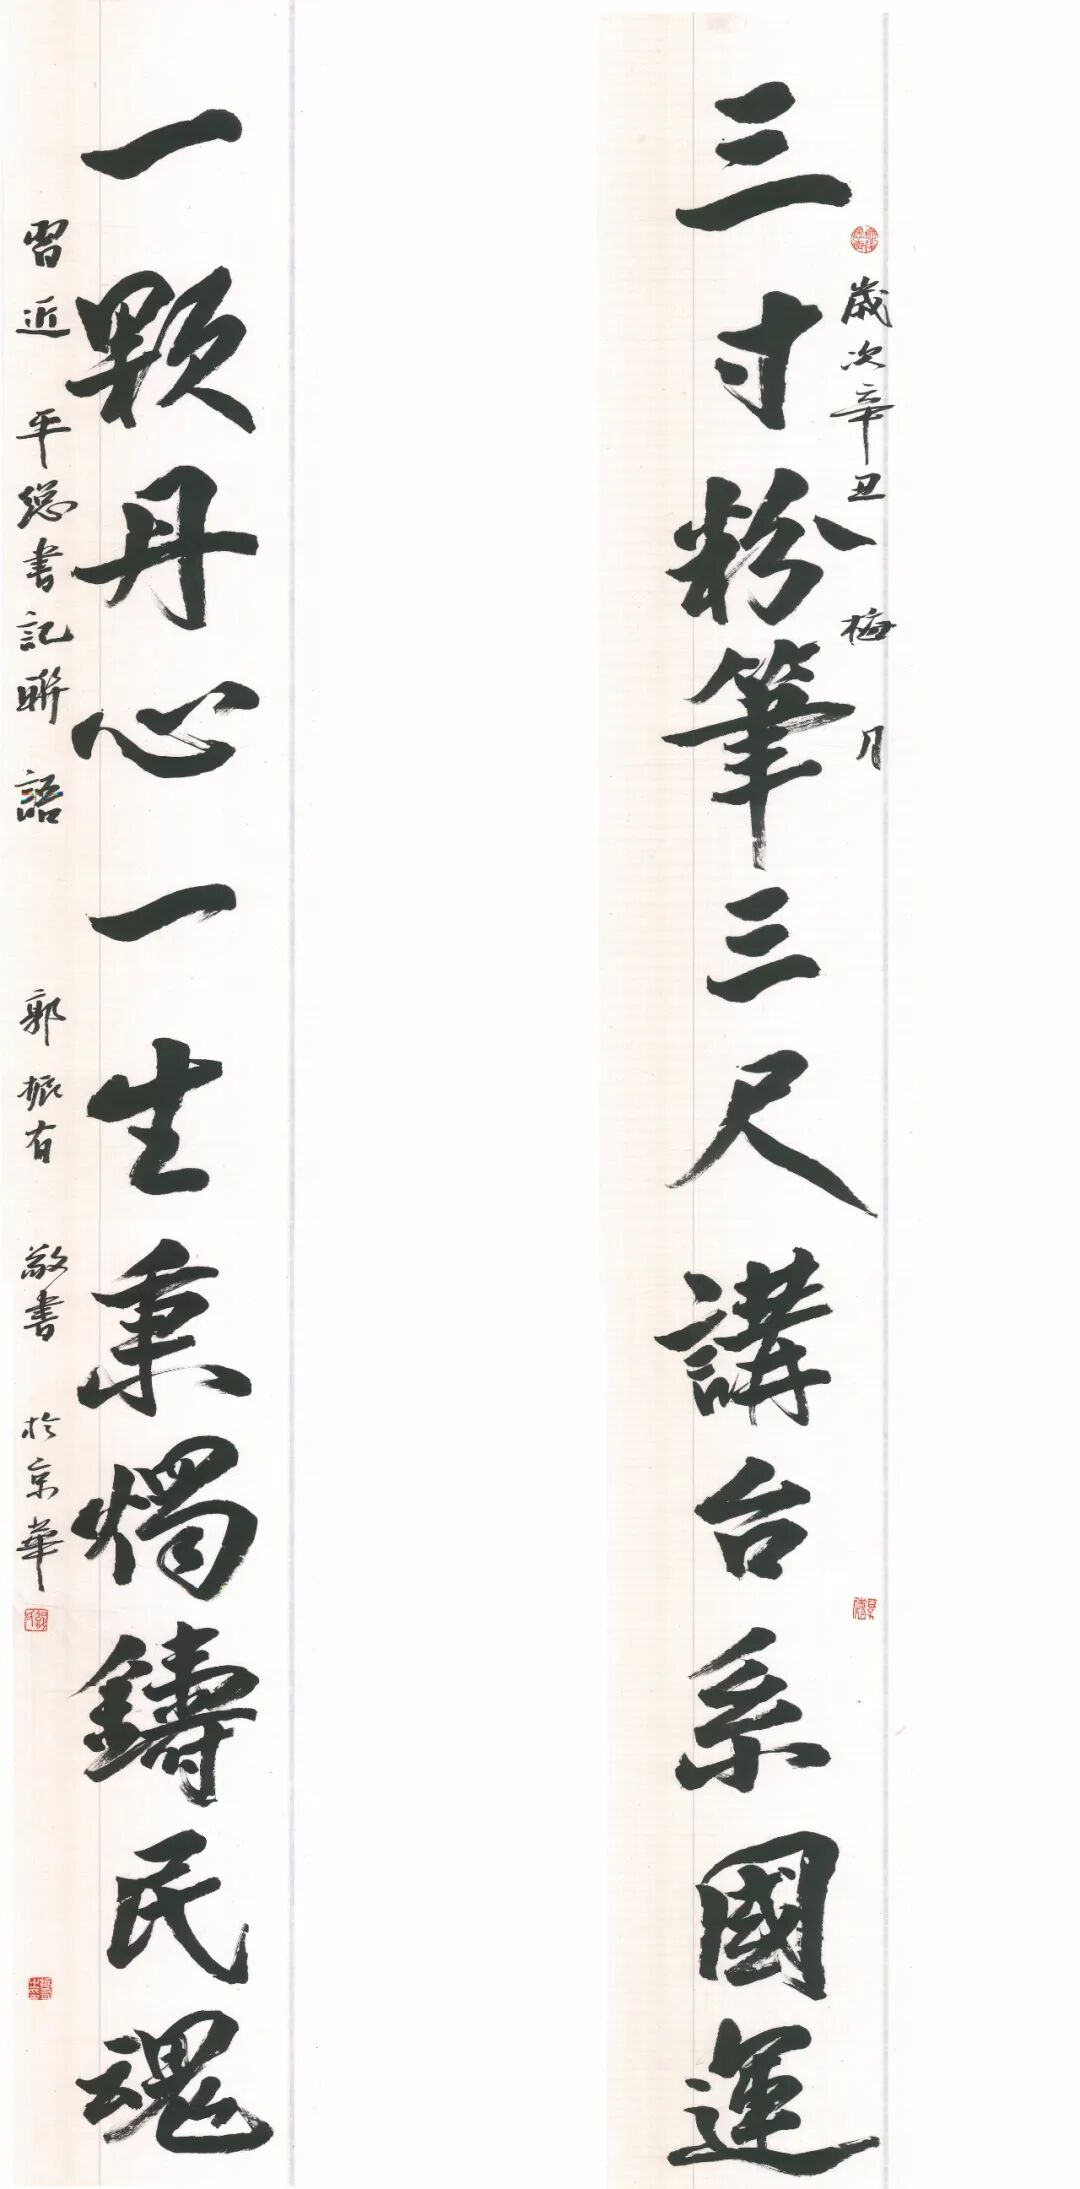 三寸粉筆三尺講台系國運
歲次辛丑梅月
一顆丹心一生秉燭鑄民魂
習近平總書記聯語
郭振有敬書於京華